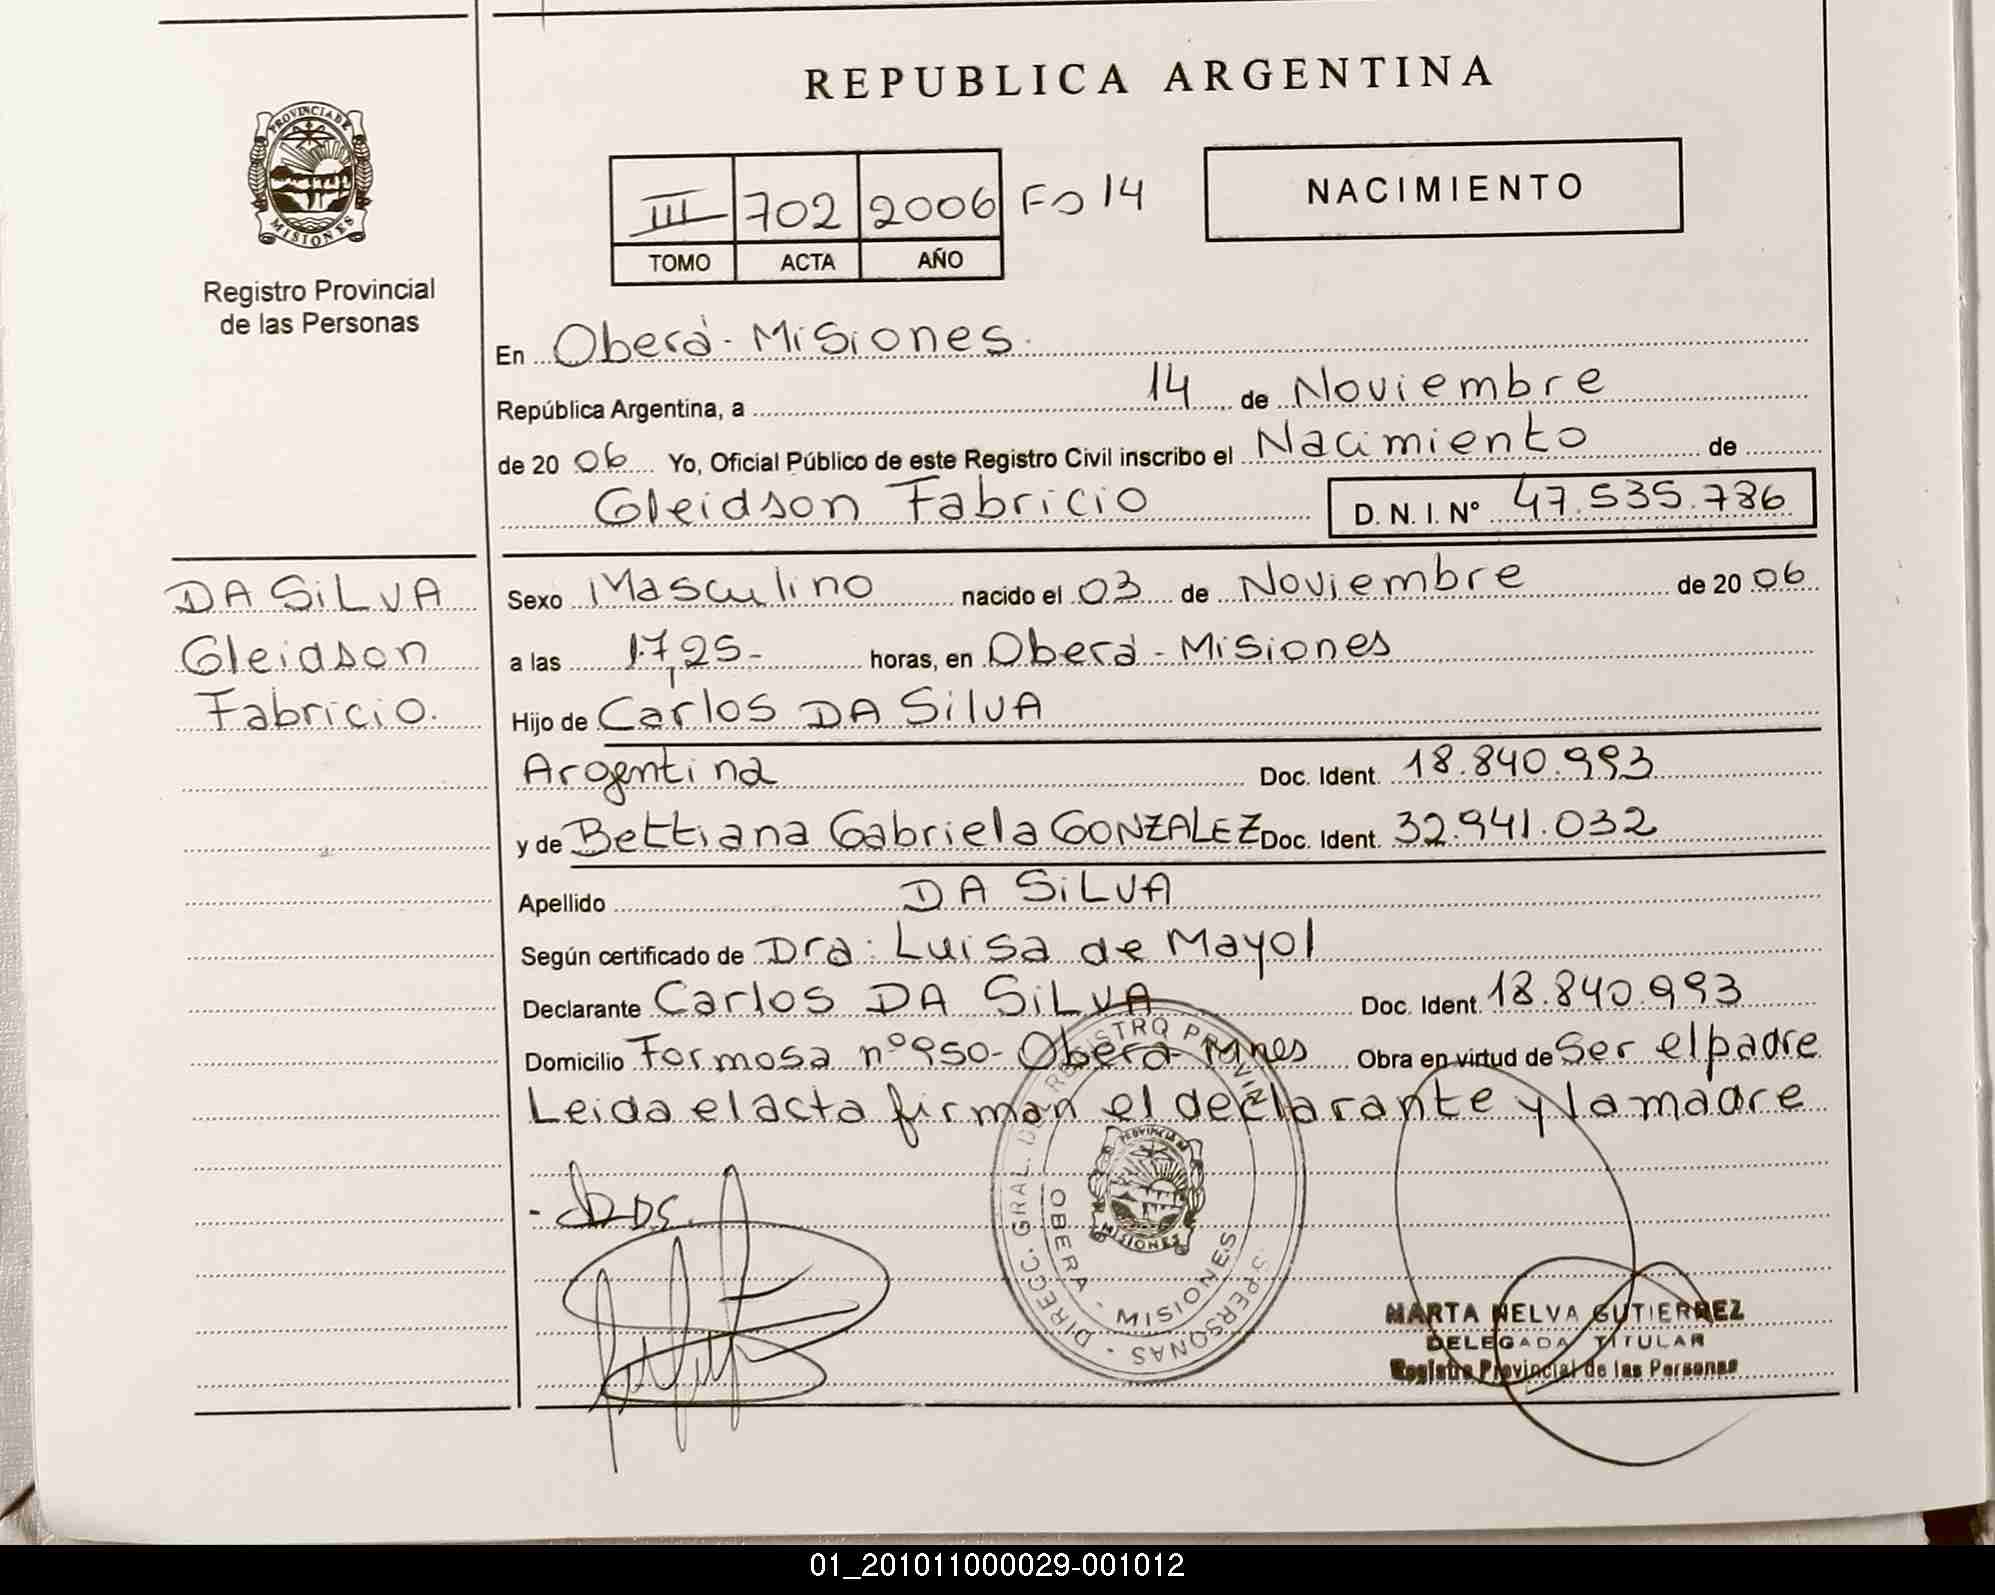 REPUBLICA ARGENTINA
PROVINCIA DE
MISIONES
Registro Provincial
de las Personas
III 702 2006 Fo 14
TOMO ACTA AÑO
NACIMIENTO
En Oberá - Misiones.
República Argentina, a 14 de Noviembre
de 20 06 Yo, Oficial Público de este Registro Civil inscribo el Nacimiento de
Gleidson Fabricio D. N. I. Nº 47.535.786
DA SiLVA
Gleidson
Fabricio.
Sexo Masculino nacido el 03 de Noviembre de 20 06
a las 17,25- horas, en Oberá - Misiones
Hijo de Carlos DA SilVA
Argentina Doc. Ident. 18.840.993
y de Bettiana Gabriela GONZALEZ Doc. Ident. 32.941.032
Apellido DA SiLVA
Según certificado de Dra: Luisa de Mayol
Declarante Carlos DA SiLVA Doc. Ident. 18.840.993
Domicilio Formosa nº 950- Oberá- Mnes Obra en virtud de Ser el padre
Leida el acta firman el declarante y la madre
DIRECC. GRAL. DE REGISTRO PROVINCIAL PERSONAS
OBERA - MISIONES
PROVINCIA DE
MISIONES
MARTA NELVA GUTIERREZ
DELEGADA TITULAR
Registro Provincial de las Personas
01_201011000029-001012